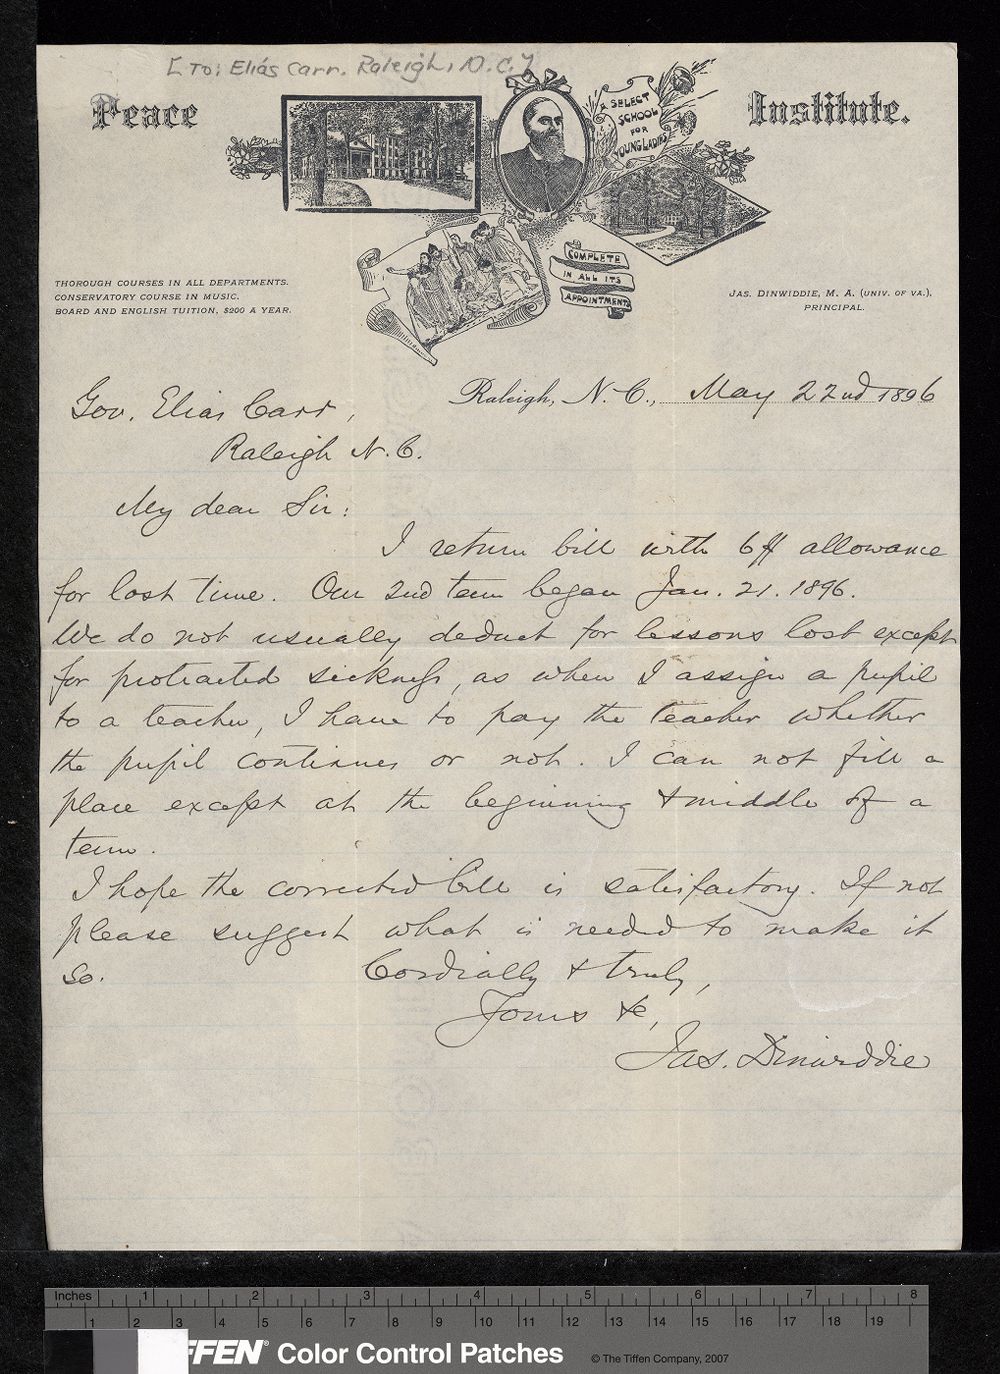 [To: Elias Carr. Raleigh, N.C.]
Peace Institute.
A SELECT
SCHOOL
FOR
YOUNG LADIES
COMPLETE
IN ALL ITS
APPOINTMENTS
THOROUGH COURSES IN ALL DEPARTMENTS.
CONSERVATORY COURSE IN MUSIC.
BOARD AND ENGLISH TUITION, $200 A YEAR.
JAS. DINWIDDIE, M. A. (UNIV. OF VA.),
PRINCIPAL.
Raleigh, N. C., May 22nd 1896
Gov. Elias Carr,
Raleigh N. C.
My dear Sir:
I return bill with allowance
for lost time. Our 2nd term began Jan. 21. 1896.
We do not usually deduct for lessons lost except
for protracted sickness, as when I assign a pupil
to a teacher, I have to pay the teacher whether
the pupil continues or not. I can not fill a
place except at the beginning & middle of a
term.
I hope the corrected bill is satisfactory. If not
please suggest what is needed to make it
so. Cordially & truly,
Yours &c,
Jas. Dinwiddie
Inches 1 2 3 4 5 6 7 8
1 2 3 4 5 6 7 8 9 10 11 12 13 14 15 16 17 18 19
FFEN® Color Control Patches © The Tiffen Company, 2007